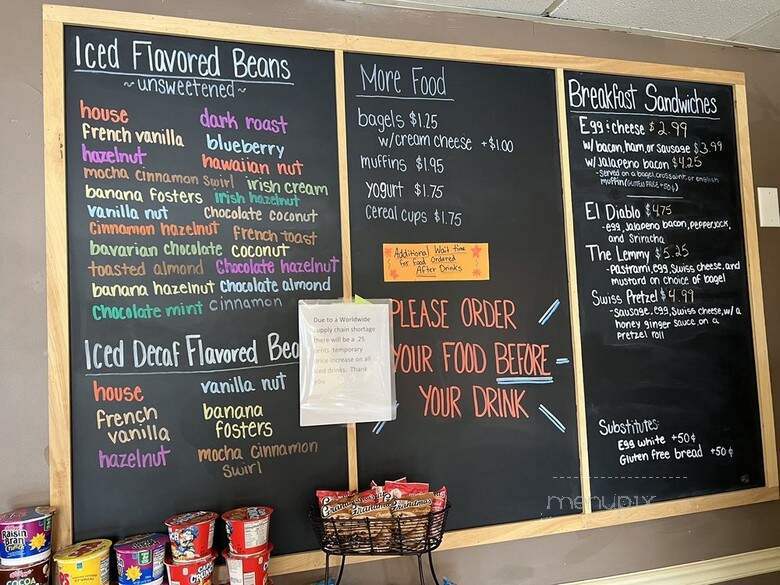 Iced Flavored Beans
~unsweetened~
house dark roast
French vanilla blueberry
hazelnut hawaiian nut
mocha cinnamon swirl irish cream
banana fosters irish hazelnut
vanilla nut chocolate coconut
Cinnamon hazelnut French toast
bavarian chocolate coconut
toasted almond Chocolate hazelnut
banana hazelnut chocolate almond
Chocolate mint cinnamon
Iced Decaf Flavored Bea
house vanilla nut
French vanilla banana fosters
hazelnut mocha cinnamon swirl
Due to a Worldwide
supply chain shortage
there will be a .25
cents temporary
price increase on all
iced drinks. Thank
you
More Food
bagels $1.25
w/cream cheese +$1.00
muffins $1.95
yogurt $1.75
cereal cups $1.75
Additional Wait time
for Food Ordered
After Drinks
PLEASE ORDER
YOUR FOOD BEFORE
YOUR DRINK
Breakfast Sandwiches
Egg & cheese $2.99
w/bacon, ham, or sausage $3.99
w/Jalapeno bacon $4.25
-served on a bagel, croissant, or english
El Diablo $4.75
-egg, Jalapeno bacon, pepperjack,
and Sriracha
The Lemmy $5.25
-Pastrami, egg, Swiss cheese, and
mustard on choice of bagel
Swiss Pretzel $4.99
-Sausage, egg, Swiss cheese, w/a
honey ginger sauce on a
Pretzel roll
Substitutes:
Egg white +50¢
Gluten free bread +50¢
menupix
Raisin
Bran
CRUNCH
COCOA
Grandma's
Grandma's
CRUNCH